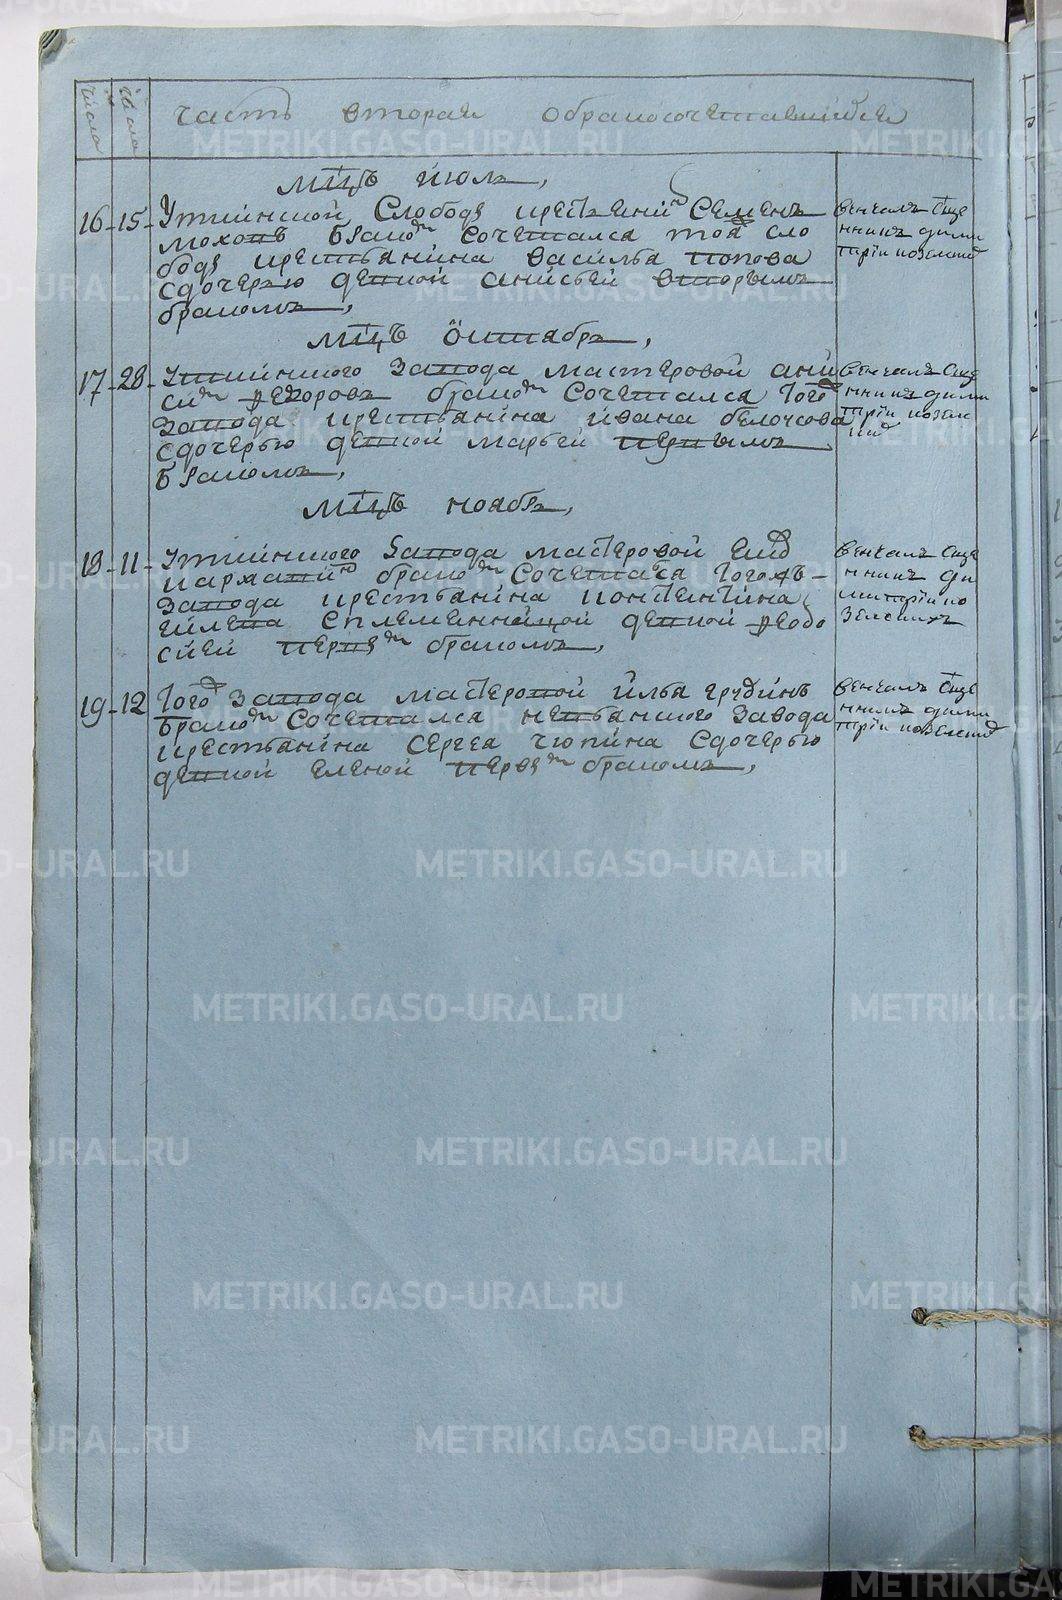 числа
числа
часть вторая обракосочетавшихся
мцъ июль,
16 15 Уткинской Слободы крестьенинъ Семенъ
моховъ бракомъ сочетался той сло
боды крестьянина василья попова
сдочерью девкой анисьей вторымъ
бракомъ,
венчалъ Свще
нникъ дими
трий
мцъ октябрь,
17 28 Уткинского Завода мастеровой ани
симъ федоровъ бракомъ сочетался Того
Завода крестьянина ивана белоусова
сдочерью девкой марьей первымъ
бракомъ,
венчалъ Свще
нникъ дими
трий
мцъ ноябрь,
18 11 Уткинского Завода мастеровой
бракомъ Сочетался Тогожъ
Завода крестьянина
сплеменницой девкой федо
сьей первымъ бракомъ,
венчалъ Свще
нникъ ди
митрий
19 12 Того Завода мастеровой Илья грудинъ
бракомъ Сочетался невьянского Завода
крестьянина Сергея чюпина Сдочерью
девкой еленой первымъ бракомъ,
венчалъ Свще
нникъ дими
трий
METRIKI.GASO-URAL.RU